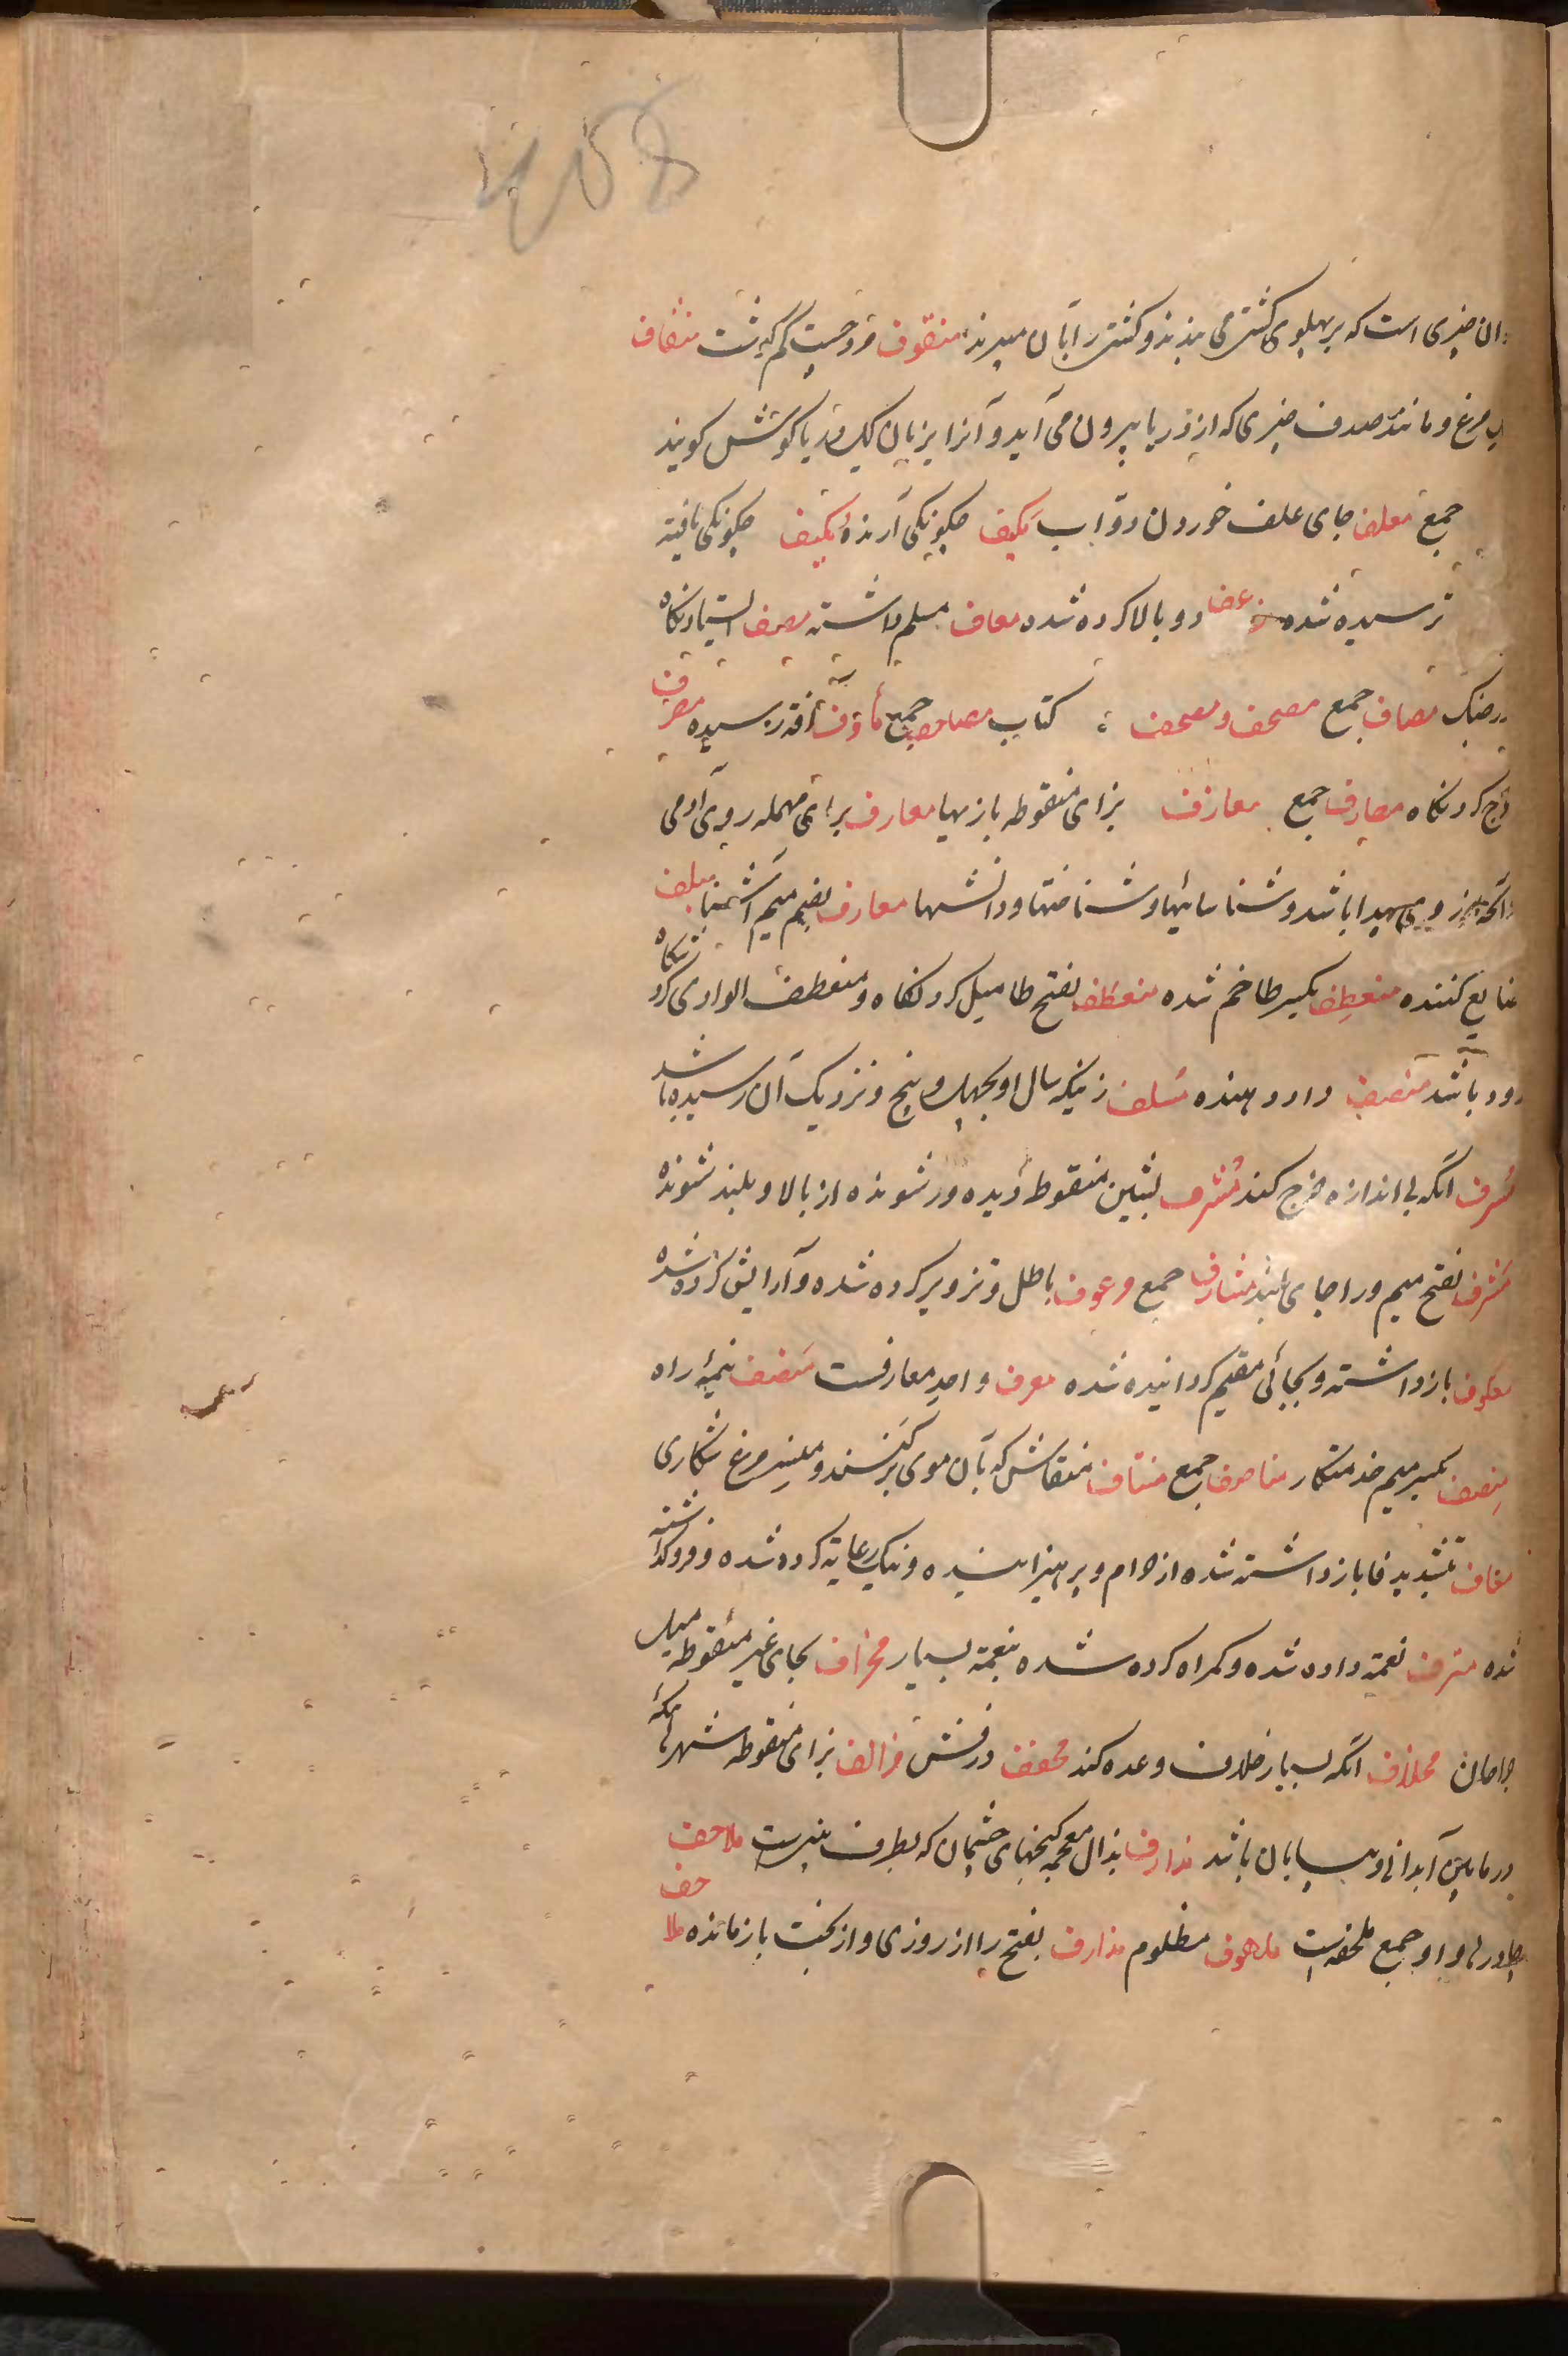 ان چیزی است که بر پهلوی کشتی می بندند و کشتی را بآن میبرند منقوف مرد کم گوشت منقاف
مرغ و مانند صدف چیزی که از دریا بیرون می آید و آنرا بزبان کیک دریا گوش گویند
جمع معلف جای علف خوردن دواب مکیف چگونگی آرنده مکیف چگونگی یافته
ترسیده شده دو بالا کرده شده معاف مسلم داشته مصف ایستادنگاه
در جنگ مصاف جمع مصحف و مصحف کتاب مصاحف جمع ماؤف آفة رسیده مصرف
خرج کردنگاه مصارف جمع معازف بزای منقوطه بازیها معارف برای مهمله روی آدمی
و آنچه از روی پیدا باشد و شناسائیها و شناختها و دانشها معارف بضم میم آشنا متلف
ضایع کننده منعطف بکسر طا خم شده منعطف بفتح طا میل کردنگاه و منعطف الوادی کرد
رود باشد منصف داد دهنده مسلف زنیکه سال او بچهل و پنج و نزدیک آن رسیده باشد
مسرف آنکه بی اندازه خرج کند مشرف بشین منقوط دیده ور شونده از بالا و بلند شونده
مشرف بفتح میم و را جای بلند مشارف جمع مزعوف باطل و تزویر کرده شده و آرایش کرده شده
معکوف باز داشته و بجائی مقیم گردانیده شده معرف واحد معارفست منصف نیمهٔ راه
منصف بکسر میم خدمتکار مناصف جمع منتاف منقاش که بآن موی برکنند و منسر مرغ شکاری
معاف بتشدید فا باز داشته شده از حرام و پرهیزانیده و نیک رعایة کرده شده و فرو گذاشته
شده مترف نعمة داده شده و گمراه کرده شده بنعمة بسیار محراف بحای غیر منقوطه میل
جراحان مخلاف آنکه بسیار خلاف وعده کند مخصف درفش مزالف بزای منقوطه شهرهائیکه
در مابین آبدانی و بیابان باشد مذارف بذال معجمه کنجهای چشمان که بطرف بینیست ملاحف
چادرها و او جمع ملحفه است ملهوف مظلوم مذارف بفتح را از روزی و از بخت باز مانده ملاحف